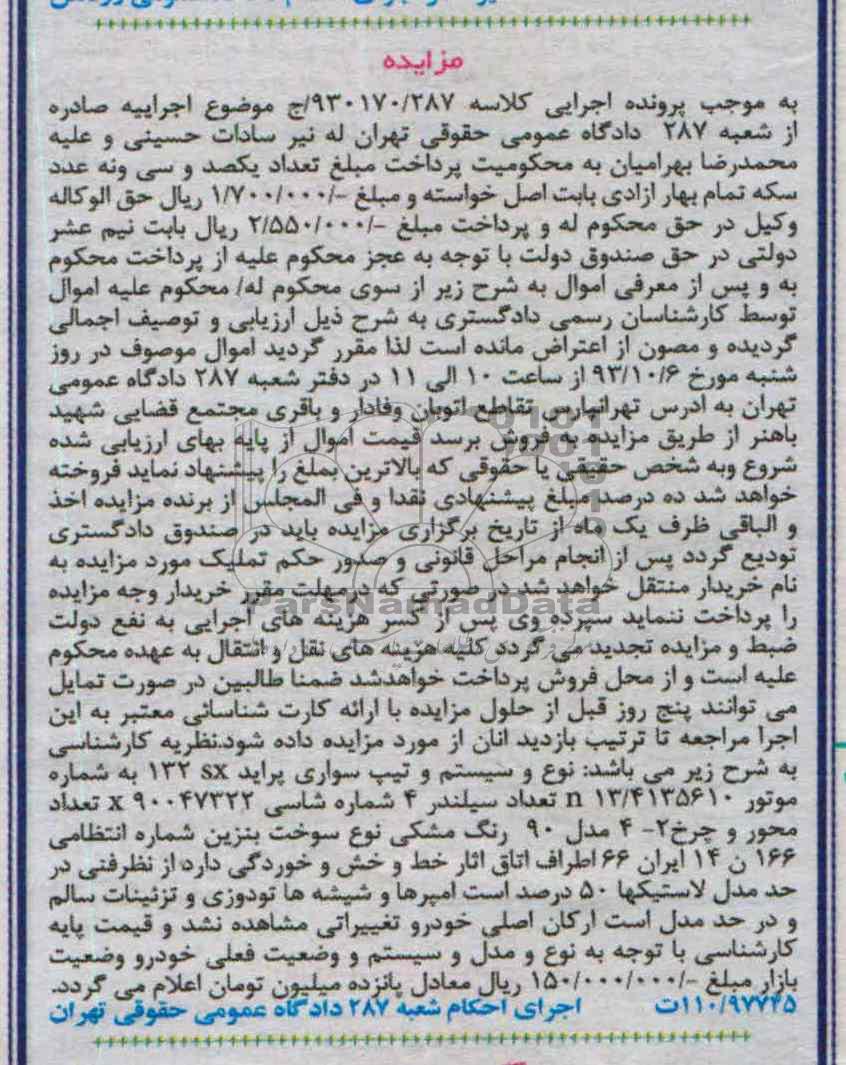 مزایده
به موجب پرونده اجرایی کلاسه ۹۳۰۱۷۰/۲۸۷/ج موضوع اجراییه صادره
از شعبه ۲۸۷ دادگاه عمومی حقوقی تهران له نیر سادات حسینی و علیه
محمدرضا بهرامیان به محکومیت پرداخت مبلغ تعداد یکصد و سی ونه عدد
سکه تمام بهار ازادی بابت اصل خواسته و مبلغ -/۱/۷۰۰/۰۰۰ ریال حق الوکاله
وکیل در حق محکوم له و پرداخت مبلغ -/۲/۵۵۰/۰۰۰ ریال بابت نیم عشر
دولتی در حق صندوق دولت با توجه به عجز محکوم علیه از پرداخت محکوم
به و پس از معرفی اموال به شرح زیر از سوی محکوم له/ محکوم علیه اموال
توسط کارشناسان رسمی دادگستری به شرح ذیل ارزیابی و توصیف اجمالی
گردیده و مصون از اعتراض مانده است لذا مقرر گردید اموال موصوف در روز
شنبه مورخ ۹۳/۱۰/۶ از ساعت ۱۰ الی ۱۱ در دفتر شعبه ۲۸۷ دادگاه عمومی
تهران به ادرس تهرانپارس تقاطع اتوبان وفادار و باقری مجتمع قضایی شهید
باهنر از طریق مزایده به فروش برسد قیمت اموال از پایه بهای ارزیابی شده
شروع وبه شخص حقیقی یا حقوقی که بالاترین بملغ را پیشنهاد نماید فروخته
خواهد شد ده درصد مبلغ پیشنهادی نقدا و فی المجلس از برنده مزایده اخذ
و الباقی ظرف یک ماه از تاریخ برگزاری مزایده باید در صندوق دادگستری
تودیع گردد پس از انجام مراحل قانونی و صدور حکم تملیک مورد مزایده به
نام خریدار منتقل خواهد شد در صورتی که درمهلت مقرر خریدار وجه مزایده
ParsNamadData
را پرداخت ننماید سپرده وی پس از کسر هزینه های اجرایی به نفع دولت
ضبط و مزایده تجدید می گردد کلیه هزینه های نقل و انتقال به عهده محکوم
علیه است و از محل فروش پرداخت خواهدشد ضمنا طالبین در صورت تمایل
می توانند پنج روز قبل از حلول مزایده با ارائه کارت شناسائی معتبر به این
اجرا مراجعه تا ترتیب بازدید انان از مورد مزایده داده شود.نظریه کارشناسی
به شرح زیر می باشد: نوع و سیستم و تیپ سواری پراید ۱۳۲ sx به شماره
موتور ۱۳/۴۱۳۵۶۱۰ n تعداد سیلندر ۴ شماره شاسی ۹۰۰۴۷۳۲۲ x تعداد
محور و چرخ۲- ۴ مدل ۹۰ رنگ مشکی نوع سوخت بنزین شماره انتظامی
۱۶۶ ن ۱۴ ایران ۶۶ اطراف اتاق اثار خط و خش و خوردگی دارد از نظرفنی در
حد مدل لاستیکها ۵۰ درصد است امپرها و شیشه ها تودوزی و تزئینات سالم
و در حد مدل است ارکان اصلی خودرو تغییراتی مشاهده نشد و قیمت پایه
کارشناسی با توجه به نوع و مدل و سیستم و وضعیت فعلی خودرو وضعیت
بازار مبلغ -/۱۵۰/۰۰۰/۰۰۰ ریال معادل پانزده میلیون تومان اعلام می گردد.
۱۱۰/۹۷۷۴۵ت اجرای احکام شعبه ۲۸۷ دادگاه عمومی حقوقی تهران